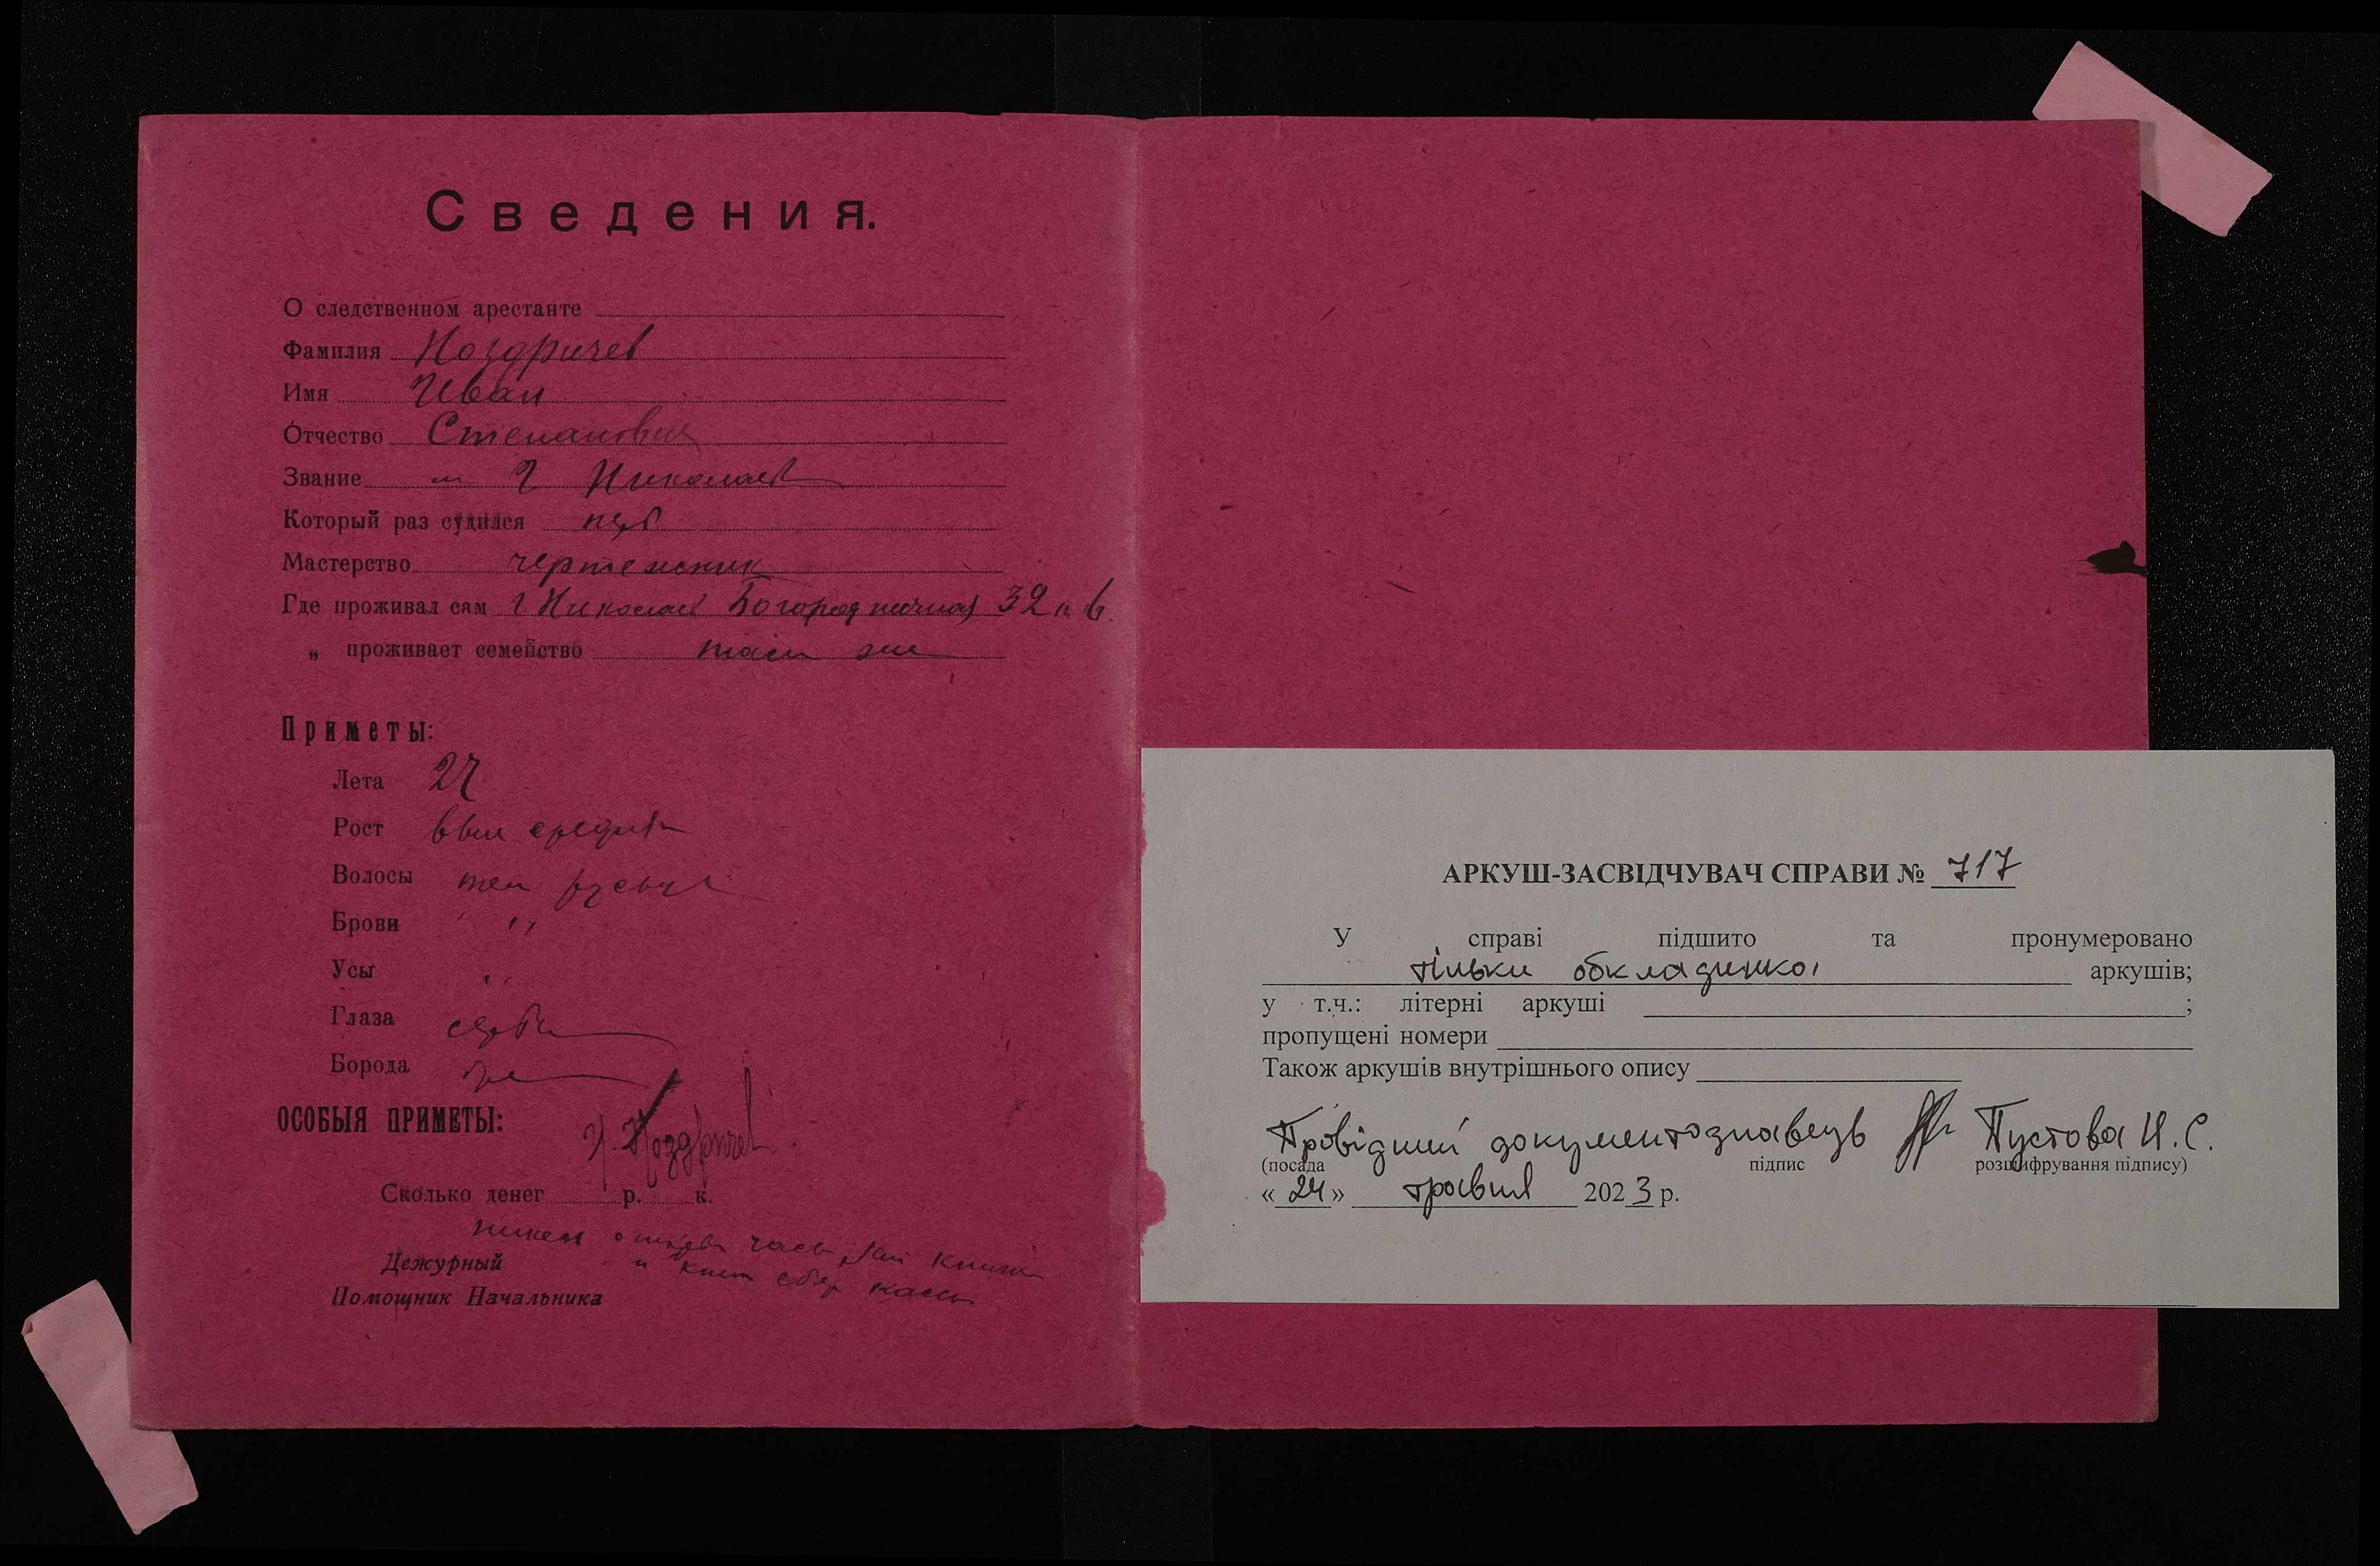 Сведения.
О следственном арестанте
Фамилия Ноздричев
Имя Иван
Отчество Степанович
Звание м г Николаев
Который раз судился пер
Мастерство чертежник
Где проживал сам г Николаев Богородничная 32 в
„ проживает семейство там же
Приметы:
Лета 27
Рост выш средн
Волосы тем русые
Брови ,,
Усы ,,
Глаза
Борода
ОСОБЫЯ ПРИМЕТЫ:
И. Ноздричев.
Сколько денег р. к.
часы книж
Дежурный и сбер кассы
Помощник Начальника
АРКУШ-ЗАСВІДЧУВАЧ СПРАВИ № 717
У справі підшито та пронумеровано
тільки обкладинка аркушів;
у т.ч.: літерні аркуші ;
пропущені номери
Також аркушів внутрішнього опису
Провідний документознавець Пустова Н.С.
(посада підпис розшифрування підпису)
« 24 » травня 2023 р.